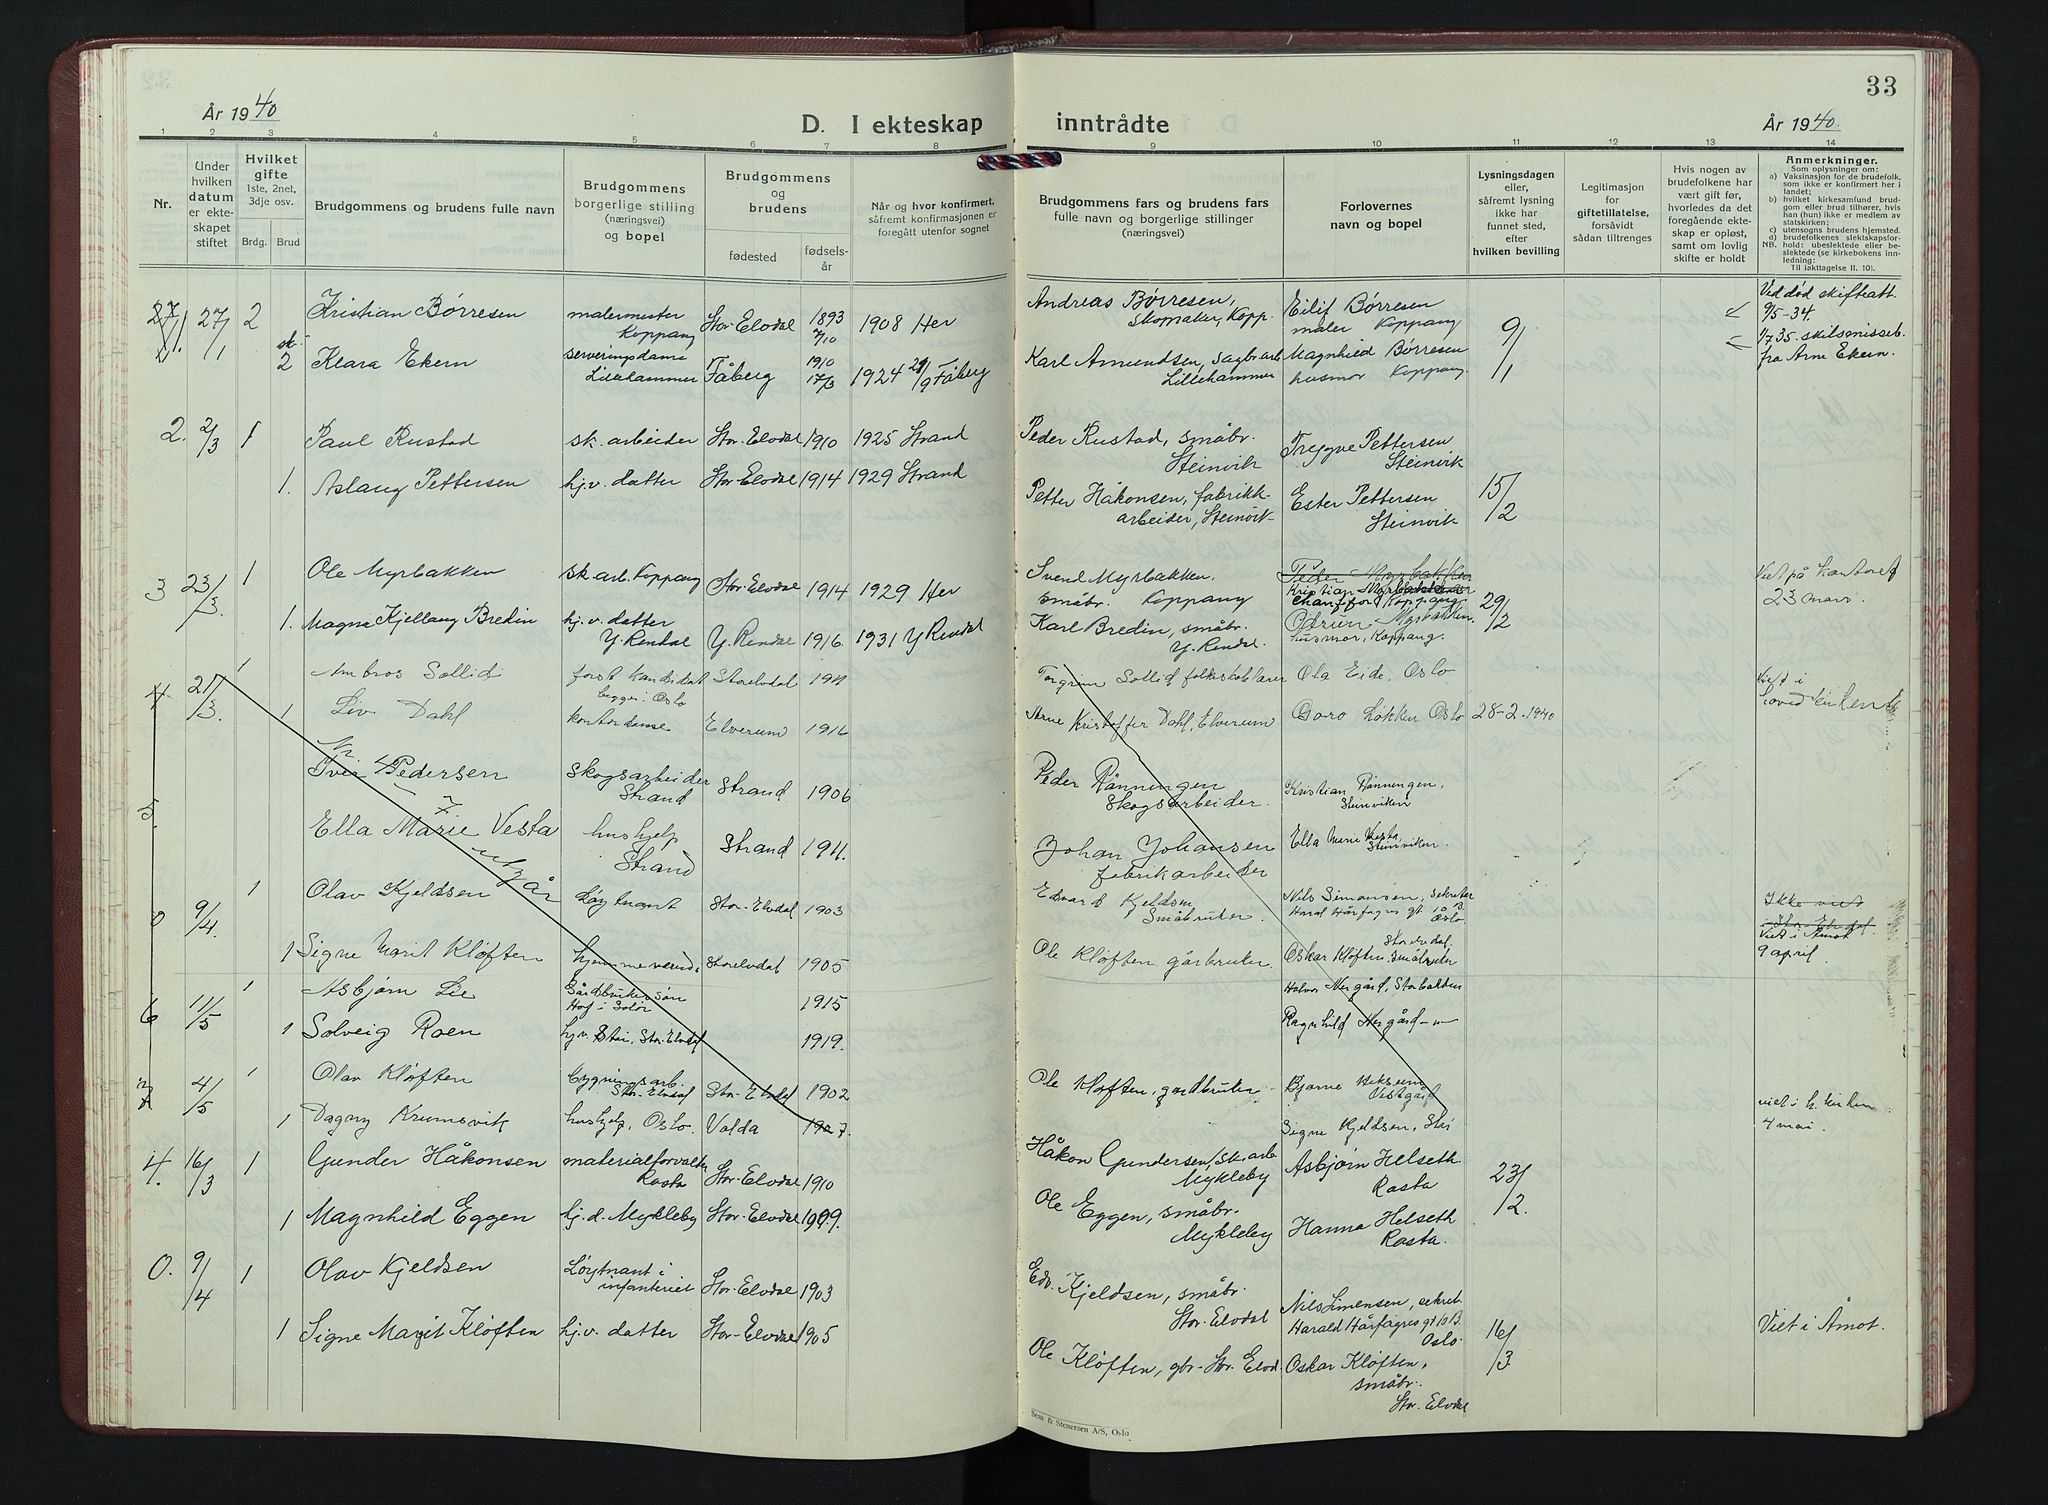 33
År 1940
D. I ekteskap
inntrådte
År 1940.
1 2 3 4 5 6 7 8 9 10 11 12 13 14
Nr.
Under
hvilken
datum
er ekte-
skapet
stiftet
Hvilket
gifte
1ste, 2net,
3dje osv.
Brdg. Brud
Brudgommens og brudens fulle navn
Brudgommens
borgerlige stilling
(næringsvei)
og bopel
Brudgommens
og
brudens
fødested
fødsels-
år
Når og hvor konfirmert,
såfremt konfirmasjonen er
foregått utenfor sognet
Brudgommens fars og brudens fars
fulle navn og borgerlige stillinger
(næringsvei)
Forlovernes
navn og bopel
Lysningsdagen
eller,
såfremt lysning
ikke har
funnet sted,
efter
hvilken bevilling
Legitimasjon
for
giftetillatelse,
forsåvidt
sådan tiltrenges
Hvis nogen av
brudefolkene har
vært gift før,
hvorledes da det
foregående ekte-
skap er opløst,
samt om lovlig
skifte er holdt
Anmerkninger.
Som oplysninger om:
a) Vaksinasjon for de brudefolk,
som ikke er konfirmert her i
landet;
b) hvilket kirkesamfund brud-
gom eller brud tilhører, hvis
han (hun) ikke er medlem av
statskirken;
c) utensogns brudens hjemsted.
d) brudefolkenes slektskapsfor-
NB. hold: ubeslektede eller be-
slektede (se kirkebokens inn-
ledning;
Til iakttagelse II. 10).
27/1 2 Kristian Børresen malermester Koppang Stor-Elvdal 1893 7/10 1908 Her
Andreas Børresen, skomaker, Kopp. Eilif Børresen maler Koppang 9/1
Ved død skifteatt. 9/5-34.
sk. 2 Klara Ekern serveringsdame Lillehammer Fåberg 1910 17/3 1924 Fåberg
Karl Amundsen, sagbr.arb. Lillehammer Magnhild Børresen husmor Koppang.
1/7 35. skilsmisseb. fra Arne Ekern.
2. 2/3 1 Paul Rustad sk. arbeider Stor-Elvdal 1910 1925 Strand
Peder Rustad, småbr. Steinvik Trygve Pettersen Steinvik
1. Aslaug Pettersen hj.v. datter Stor-Elvdal 1914 1929 Strand
Petter Håkonsen, fabrikk-arbeider, Steinvik Ester Pettersen Steinvik 15/2
3 23/3. 1 Ole Myrbakken sk. arb. Koppang Stor-Elvdal 1914 1929 Her
Svend Myrbakken, småbr. Koppang Peder Myrbakken Kristian Myrbakken Koppang 29/2
Viet på kontoret 23 mars.
1. Magna Kjellaug Bredin hj.v. datter Y. Rendal Y. Rendal 1916 1931 Y Rendal
Karl Bredin, småbr. Y. Rendal. Myrbakken. husmor, Koppang.
4. 21/3. 1 Ambros Sollid forstkandidat Storelvdal 1911
begge i Oslo
Torgrim Sollid folkskolelærer Ola Eide, Oslo
Viet i hovedkirken
1 Liv Dahl kontordame Elverum 1916
Arne Kristoffer Dahl, Elverum Goro Løkken Oslo 28-2-1940
Nr. 4 - 7 utgår
5. Iver Pedersen skogsarbeider Strand Strand 1906
Peder Rånningen Skogsarbeider. Kristian Rånningen, Steinviken
Ella Marie Vesta hushjelp Strand Strand 1911.
Johan Johansen fabrikarbeider Ella Marie Vesta Steinviken.
0 9/4. 1 Olav Kjeldsen Løytnant Stor-Elvdal 1903
Edvard Kjeldsen Småbruker. Nils Simonsen, sekretær Haral Hårfagres gt 10 B. Oslo
Ikke viet i Stor-Elvdal. Viet i Åmot 9 april.
1 Signe Marit Kløften hjemmevær. Storelvdal 1905
Ole Kløften gårbruker. Oskar Kløften, Småbruker Storelvdal,
6 11/5 1 Asbjørn Lie Gårdbrukersøn Hof i Solør 1915
Halvor Nergård, Storbakken
1 Solveig Roen hjv. Stai, Stor-Elvdal 1919.
Ragnhild Nergård -"-
7 4/5 1 Olav Kløften bygningsarb. Stor-Elvdal Stor-Elvdal 1902
Ole Kløften, gardbruker Bjarne Vestgård
viet i h. kirken 4 mai.
1 Dagny Krumsvik hushjelp, Oslo. Volda 1907.
Signe Kjeldsen, Stai
4. 16/3 1 Gunder Håkonsen materialforvalter Rasta Stor-Elvdal 1910
Håkon Gundersen, sk.arb. Mykleby Asbjørn Helseth Rasta 23/2.
1 Magnhild Eggen hj. d. Mykleby Stor-Elvdal 1909.
Ole Eggen, småbr. Mykleby Hanna Helseth Rasta.
0. 9/4 1 Olav Kjeldsen Løytnant i infanteriet Stor-Elvdal 1903
Edv. Kjeldsen, småbr. Stor. Elvdal Nils Simensen, sekret. Harald Hårfagres gt 10 B. Oslo 16/3
Viet i Åmot.
1 Signe Margit Kløften hj.v. datter Stor-Elvdal 1905
Ole Kløften, gbr. Stor. Elvd. Oskar Kløften, småbr. Stor. Elvdal
Sem & Stenersen A/S, Oslo